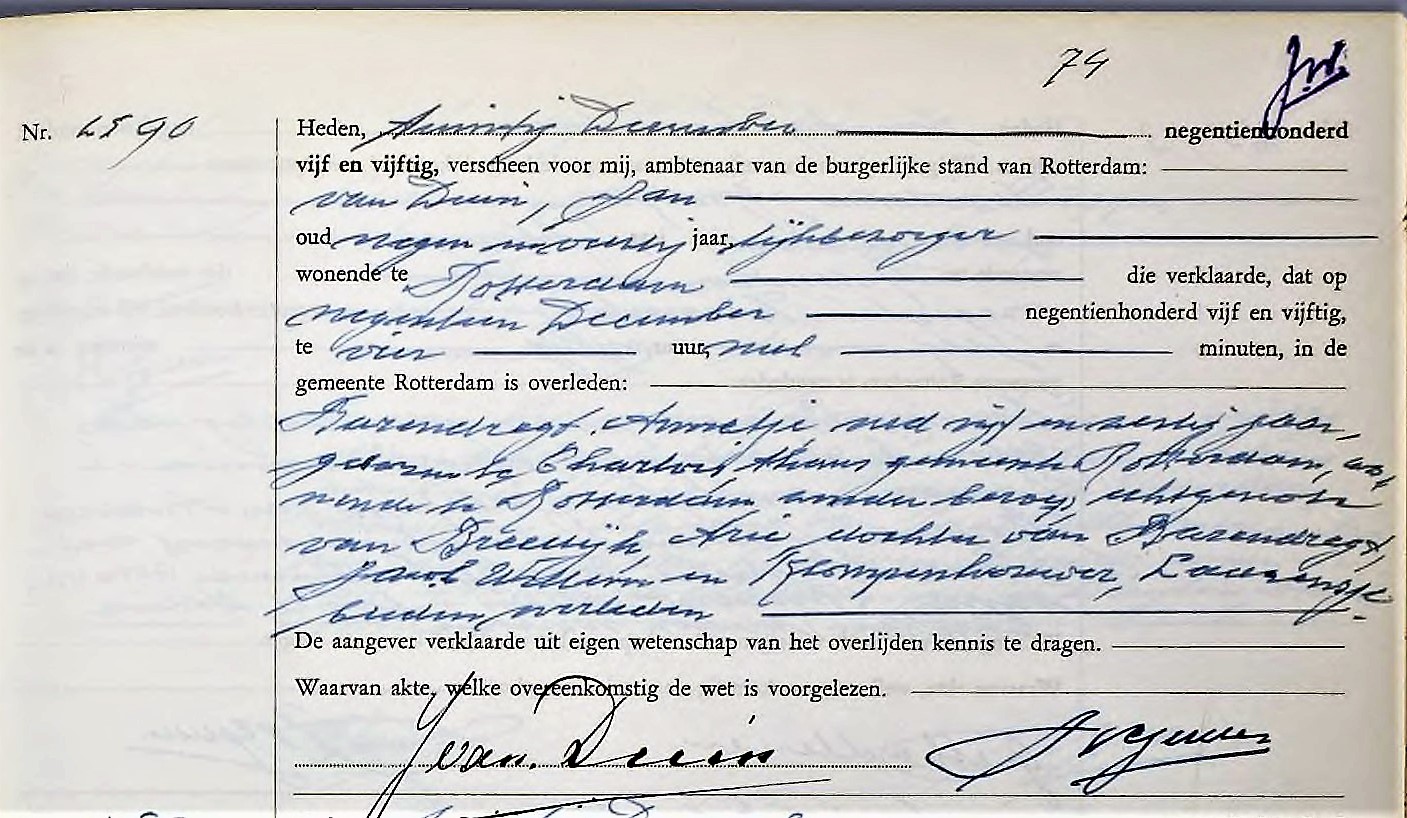 74
Nr. 4590 Heden, twintig December negentienhonderd
vijf en vijftig, verscheen voor mij, ambtenaar van de burgerlijke stand van Rotterdam:
van Duin, Jan
oud negen en veertig jaar, lijkbezorger
wonende te Rotterdam die verklaarde, dat op
negentien December negentienhonderd vijf en vijftig,
te vier uur, nul minuten, in de
gemeente Rotterdam is overleden:
Barendregt, Annetje oud vijf en zestig jaar,
geboren te Charlois thans gemeente Rotterdam, wo-
nende te Rotterdam zonder beroep, echtgenote
van Breewijk, Arie dochter van Barendregt,
Jacob Willem en Klompenhouwer,
beiden overleden
De aangever verklaarde uit eigen wetenschap van het overlijden kennis te dragen.
Waarvan akte, welke overeenkomstig de wet is voorgelezen.
J van Duin